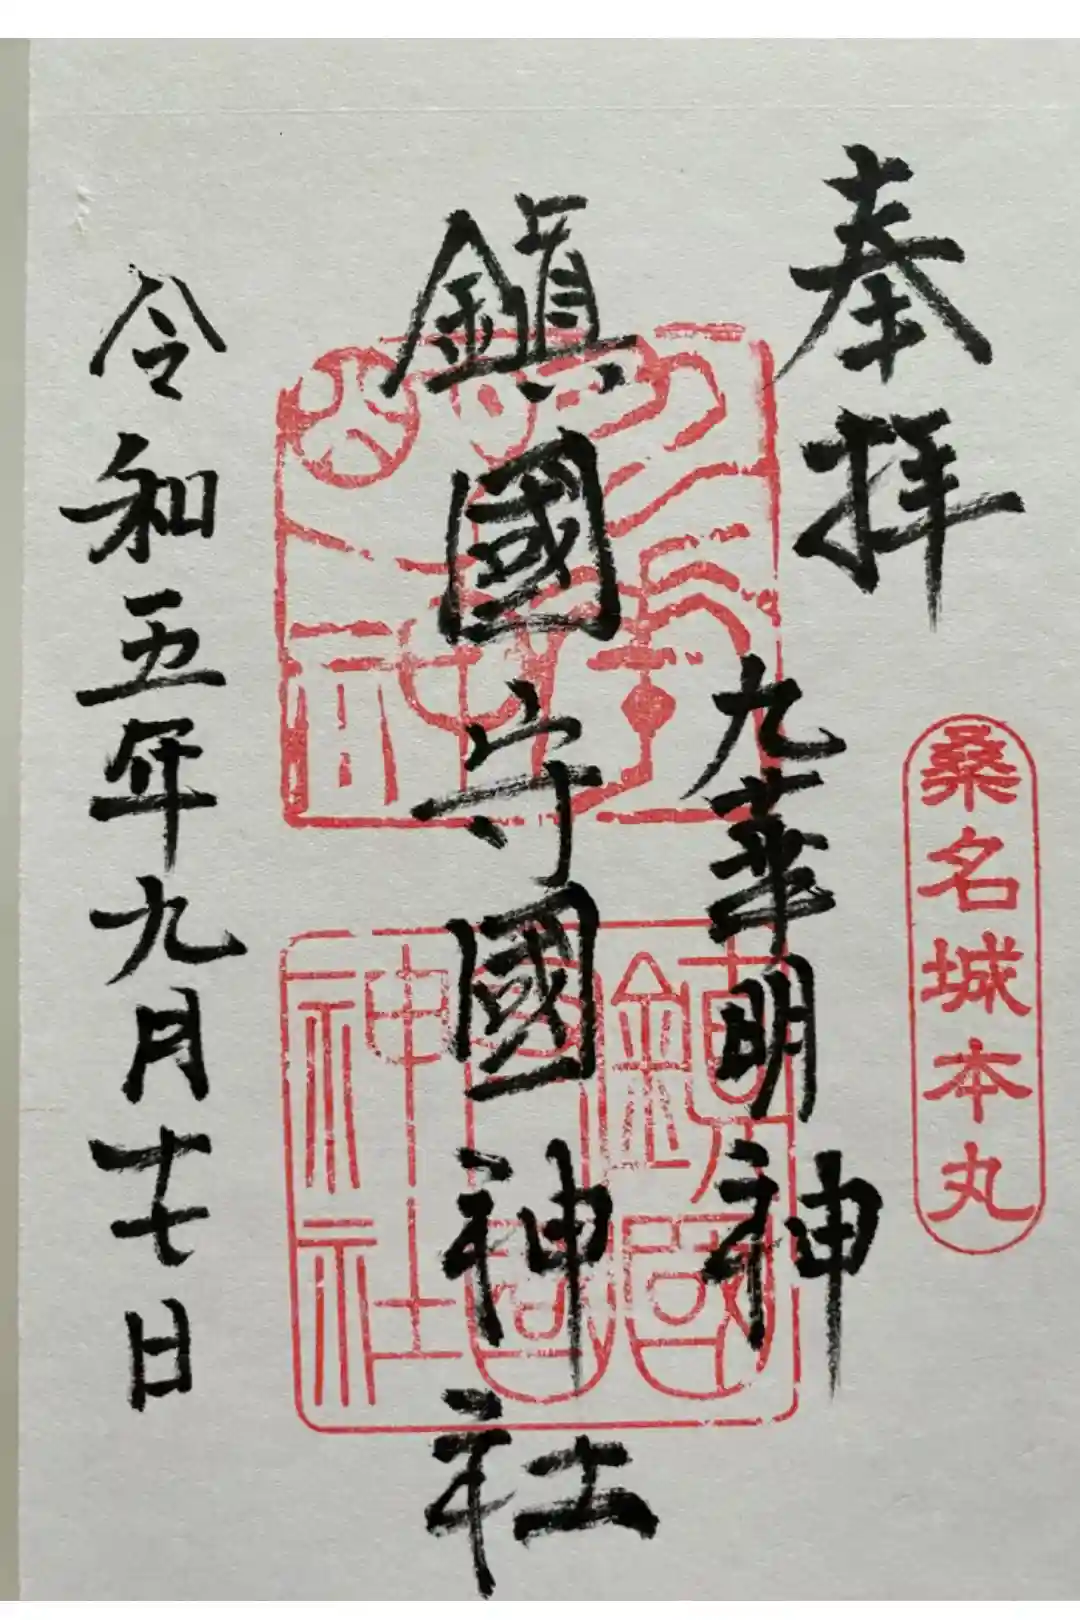 奉拝
桑名城本丸
九華明神
鎮國守國神社
鎮國
守國
神社
令和五年九月十七日